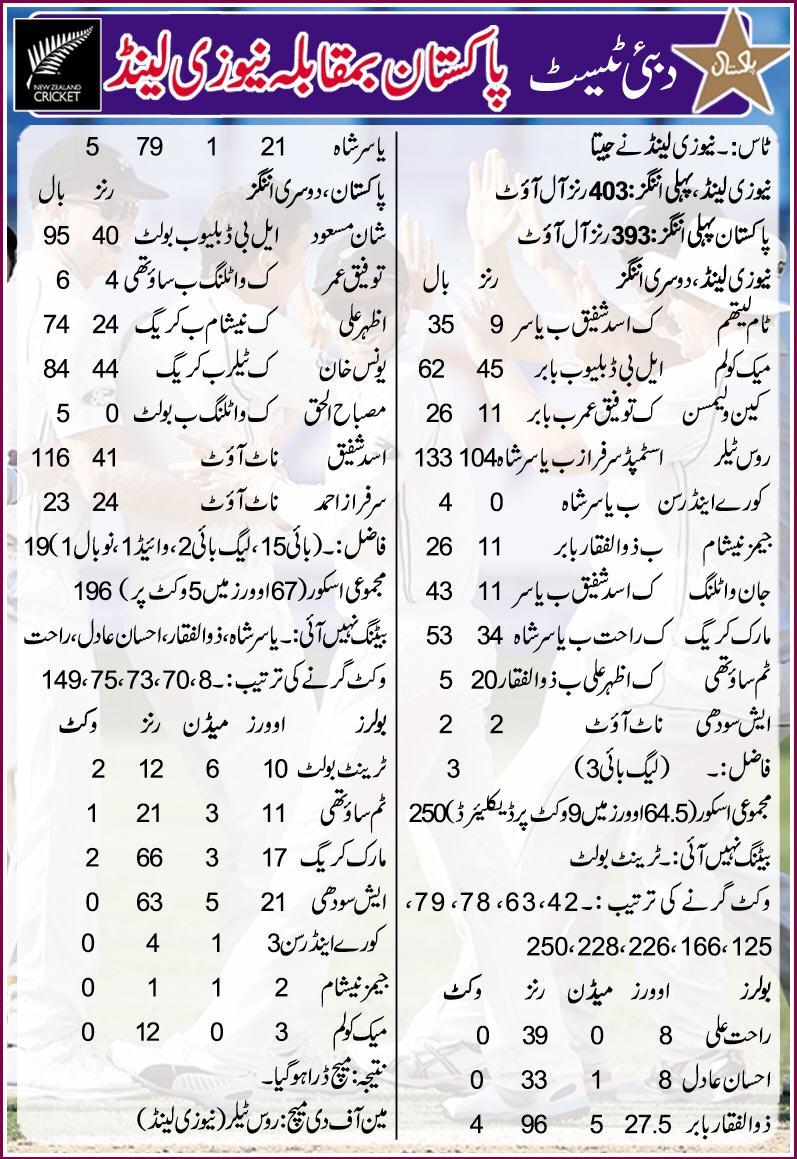 NEW ZEALAND
CRICKET
دبئی ٹیسٹ پاکستان بمقابلہ نیوزی لینڈ
پاکستان
ٹاس:۔نیوزی لینڈ نے جیتا
نیوزی لینڈ، پہلی اننگز:403رنز آل آؤٹ
پاکستان پہلی اننگز:393رنز آل آؤٹ
نیوزی لینڈ، دوسری اننگز رنز بال
ٹام لیتھم ک اسد شفیق ب یاسر 9 35
میک کولم ایل بی ڈبلیو ب بابر 45 62
کین ولیمسن ک توفیق عمر ب بابر 11 26
روس ٹیلر اسٹمپڈ سرفراز ب یاسر شاہ 104 133
کورے اینڈرسن ب یاسر شاہ 0 4
جیمز نیشام ب ذوالفقار بابر 11 26
جان واٹلنگ ک اسد شفیق ب یاسر 11 43
مارک کریگ ک راحت ب یاسر شاہ 34 53
ٹم ساؤتھی ک اظہر علی ب ذوالفقار 20 5
ایش سودھی ناٹ آؤٹ 2 2
فاضل:۔ (لیگ بائی3) 3
مجموعی اسکور(64.5اوورز میں9وکٹ پر ڈیکلیئرڈ)250
بیٹنگ نہیں آئی:۔ٹرینٹ بولٹ
وکٹ گرنے کی ترتیب:۔42،63،78،79،
125،166،226،228،250
بولرز اوورز میڈن رنز وکٹ
راحت علی 8 0 39 0
احسان عادل 8 1 33 0
ذوالفقار بابر 27.5 5 96 4
یاسر شاہ 21 1 79 5
پاکستان، دوسری اننگز رنز بال
شان مسعود ایل بی ڈبلیو ب بولٹ 40 95
توفیق عمر ک واٹلنگ ب ساؤتھی 4 6
اظہر علی ک نیشام ب کریگ 24 74
یونس خان ک ٹیلر ب کریگ 44 84
مصباح الحق ک واٹلنگ ب بولٹ 0 5
اسد شفیق ناٹ آؤٹ 41 116
سرفراز احمد ناٹ آؤٹ 24 23
فاضل:۔(بائی15،لیگ بائی2،وائیڈ1،نو بال1)19
مجموعی اسکور(67اوورز میں5وکٹ پر) 196
بیٹنگ نہیں آئی:۔یاسر شاہ،ذوالفقار،احسان عادل،راحت
وکٹ گرنے کی ترتیب:۔8،70،73،75،149
بولرز اوورز میڈن رنز وکٹ
ٹرینٹ بولٹ 10 6 12 2
ٹم ساؤتھی 11 3 21 1
مارک کریگ 17 3 66 2
ایش سودھی 21 5 63 0
کورے اینڈرسن 3 1 4 0
جیمز نیشام 2 1 1 0
میک کولم 3 0 12 0
نتیجہ:میچ ڈرا ہوگیا۔
مین آف دی میچ:روس ٹیلر(نیوزی لینڈ)